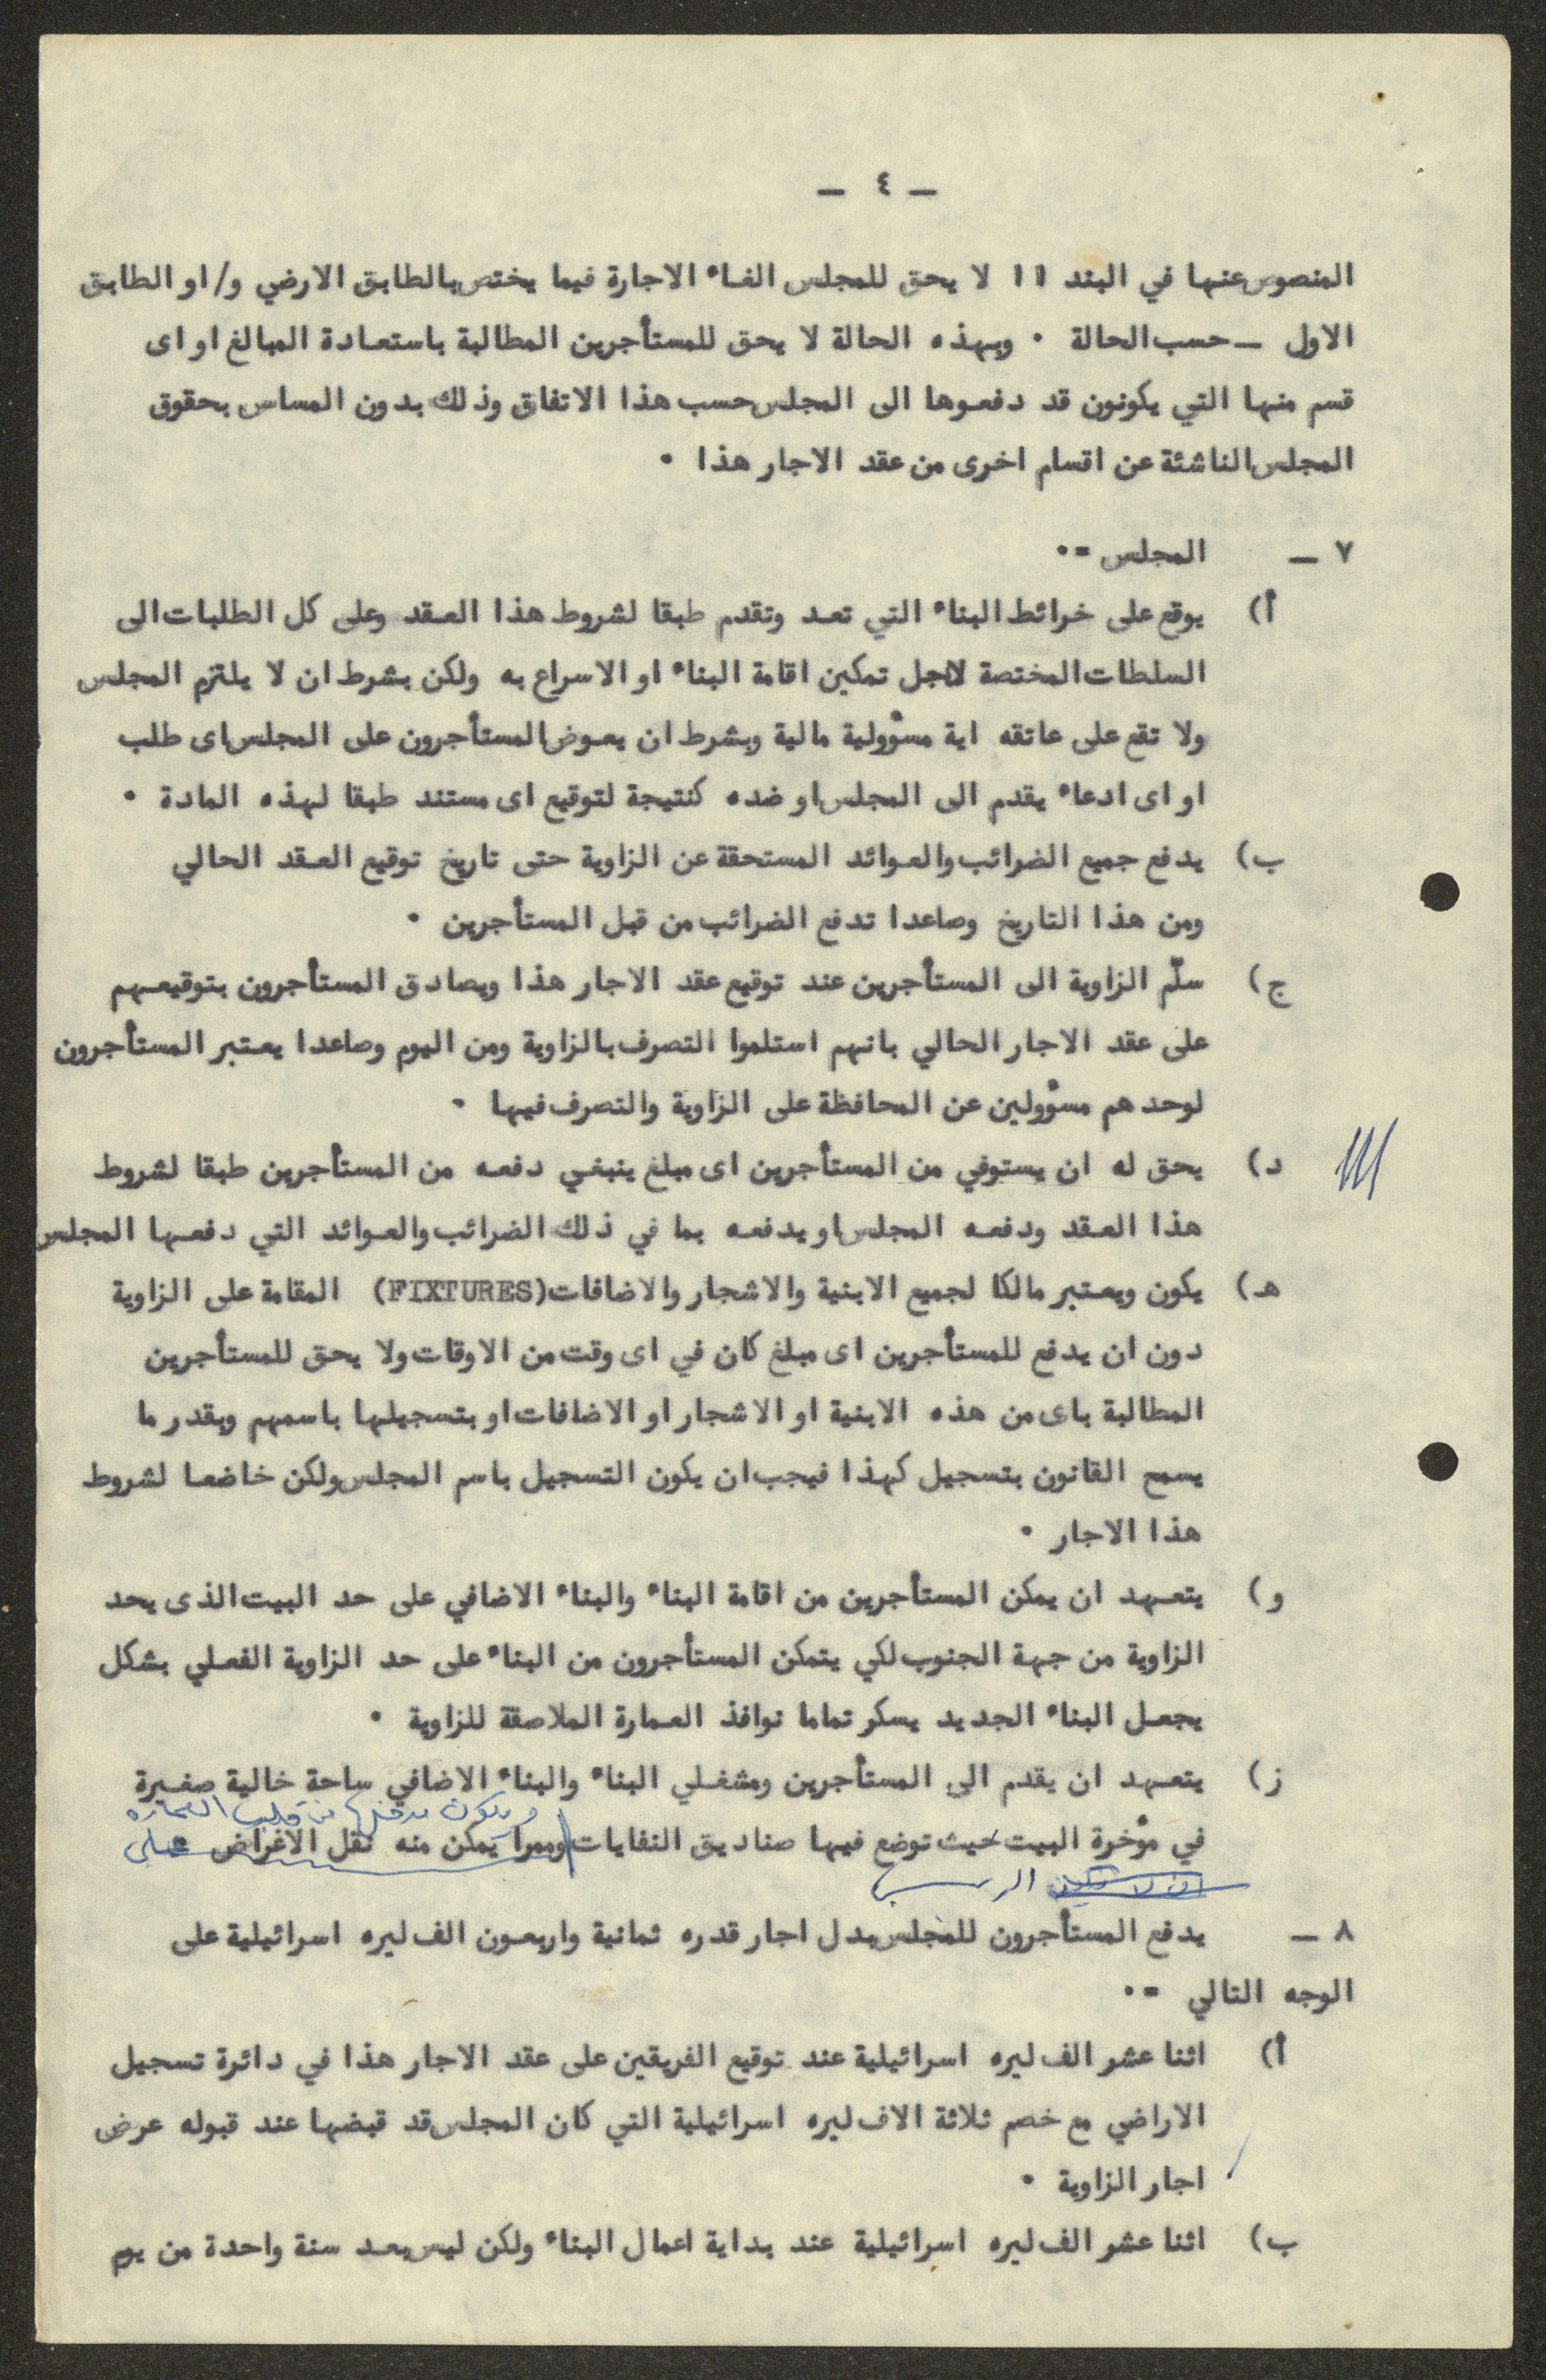 — ٤ —
المنصوص عنها في البند ١١ لا يحق للمجلس الغاء الاجارة فيما يختص بالطابق الارضي و/او الطابق
الاول — حسب الحالة . وبهذه الحالة لا يحق للمستأجرين المطالبة باستعادة المبالغ او اى
قسم منها التي يكونون قد دفعوها الى المجلس حسب هذا الاتفاق وذلك بدون المساس بحقوق
المجلس الناشئة عن اقسام اخرى من عقد الاجار هذا .
٧ — المجلس =.
أ) يوقع على خرائط البناء التي تعد وتقدم طبقا لشروط هذا العقد وعلى كل الطلبات الى
السلطات المختصة لاجل تمكين اقامة البناء او الاسراع به ولكن بشرط ان لا يلتزم المجلس
ولا تقع على عاتقه اية مسؤولية مالية وبشرط ان يعوض المستأجرون على المجلس اى طلب
او اى ادعاء يقدم الى المجلس او ضده كنتيجة لتوقيع اى مستند طبقا لهذه المادة .
ب) يدفع جميع الضرائب والعوائد المستحقة عن الزاوية حتى تاريخ توقيع العقد الحالي
ومن هذا التاريخ وصاعدا تدفع الضرائب من قبل المستأجرين .
ج) سلّم الزاوية الى المستأجرين عند توقيع عقد الاجار هذا ويصادق المستأجرون بتوقيعهم
على عقد الاجار الحالي بانهم استلموا التصرف بالزاوية ومن اليوم وصاعدا يعتبر المستأجرون
لوحدهم مسؤولين عن المحافظة على الزاوية والتصرف فيها .
د) يحق له ان يستوفي من المستأجرين اى مبلغ ينبغي دفعه من المستأجرين طبقا لشروط
هذا العقد ودفعه المجلس او يدفعه بما في ذلك الضرائب والعوائد التي دفعها المجلس
هـ) يكون ويعتبر مالكا لجميع الابنية والاشجار والاضافات (FIXTURES) المقامة على الزاوية
دون ان يدفع للمستأجرين اى مبلغ كان في اى وقت من الاوقات ولا يحق للمستأجرين
المطالبة باى من هذه الابنية او الاشجار او الاضافات او بتسجيلها باسمهم وبقدر ما
يسمح القانون بتسجيل كهذا فيجب ان يكون التسجيل باسم المجلس ولكن خاضعا لشروط
هذا الاجار .
و) يتعهد ان يمكن المستأجرين من اقامة البناء والبناء الاضافي على حد البيت الذى يحد
الزاوية من جهة الجنوب لكي يتمكن المستأجرون من البناء على حد الزاوية الفعلي بشكل
يجعل البناء الجديد يسكر تماما نوافذ العمارة الملاصقة للزاوية .
ز) يتعهد ان يقدم الى المستأجرين ومشغلي البناء والبناء الاضافي ساحة خالية صغيرة
ويكون مدخلها من قلب العماره
في مؤخرة البيت حيث توضع فيها صناديق النفايات وممرا يمكن منه نقل الاغراض على
ان لا تكون
٨ — يدفع المستأجرون للمجلس بدل اجار قدره ثمانية واربعون الف ليره اسرائيلية على
الوجه التالي =.
أ) اثنا عشر الف ليره اسرائيلية عند توقيع الفريقين على عقد الاجار هذا في دائرة تسجيل
الاراضي مع خصم ثلاثة الاف ليره اسرائيلية التي كان المجلس قد قبضها عند قبوله عرض
اجار الزاوية .
ب) اثنا عشر الف ليره اسرائيلية عند بداية اعمال البناء ولكن ليس بعد سنة واحدة من يوم